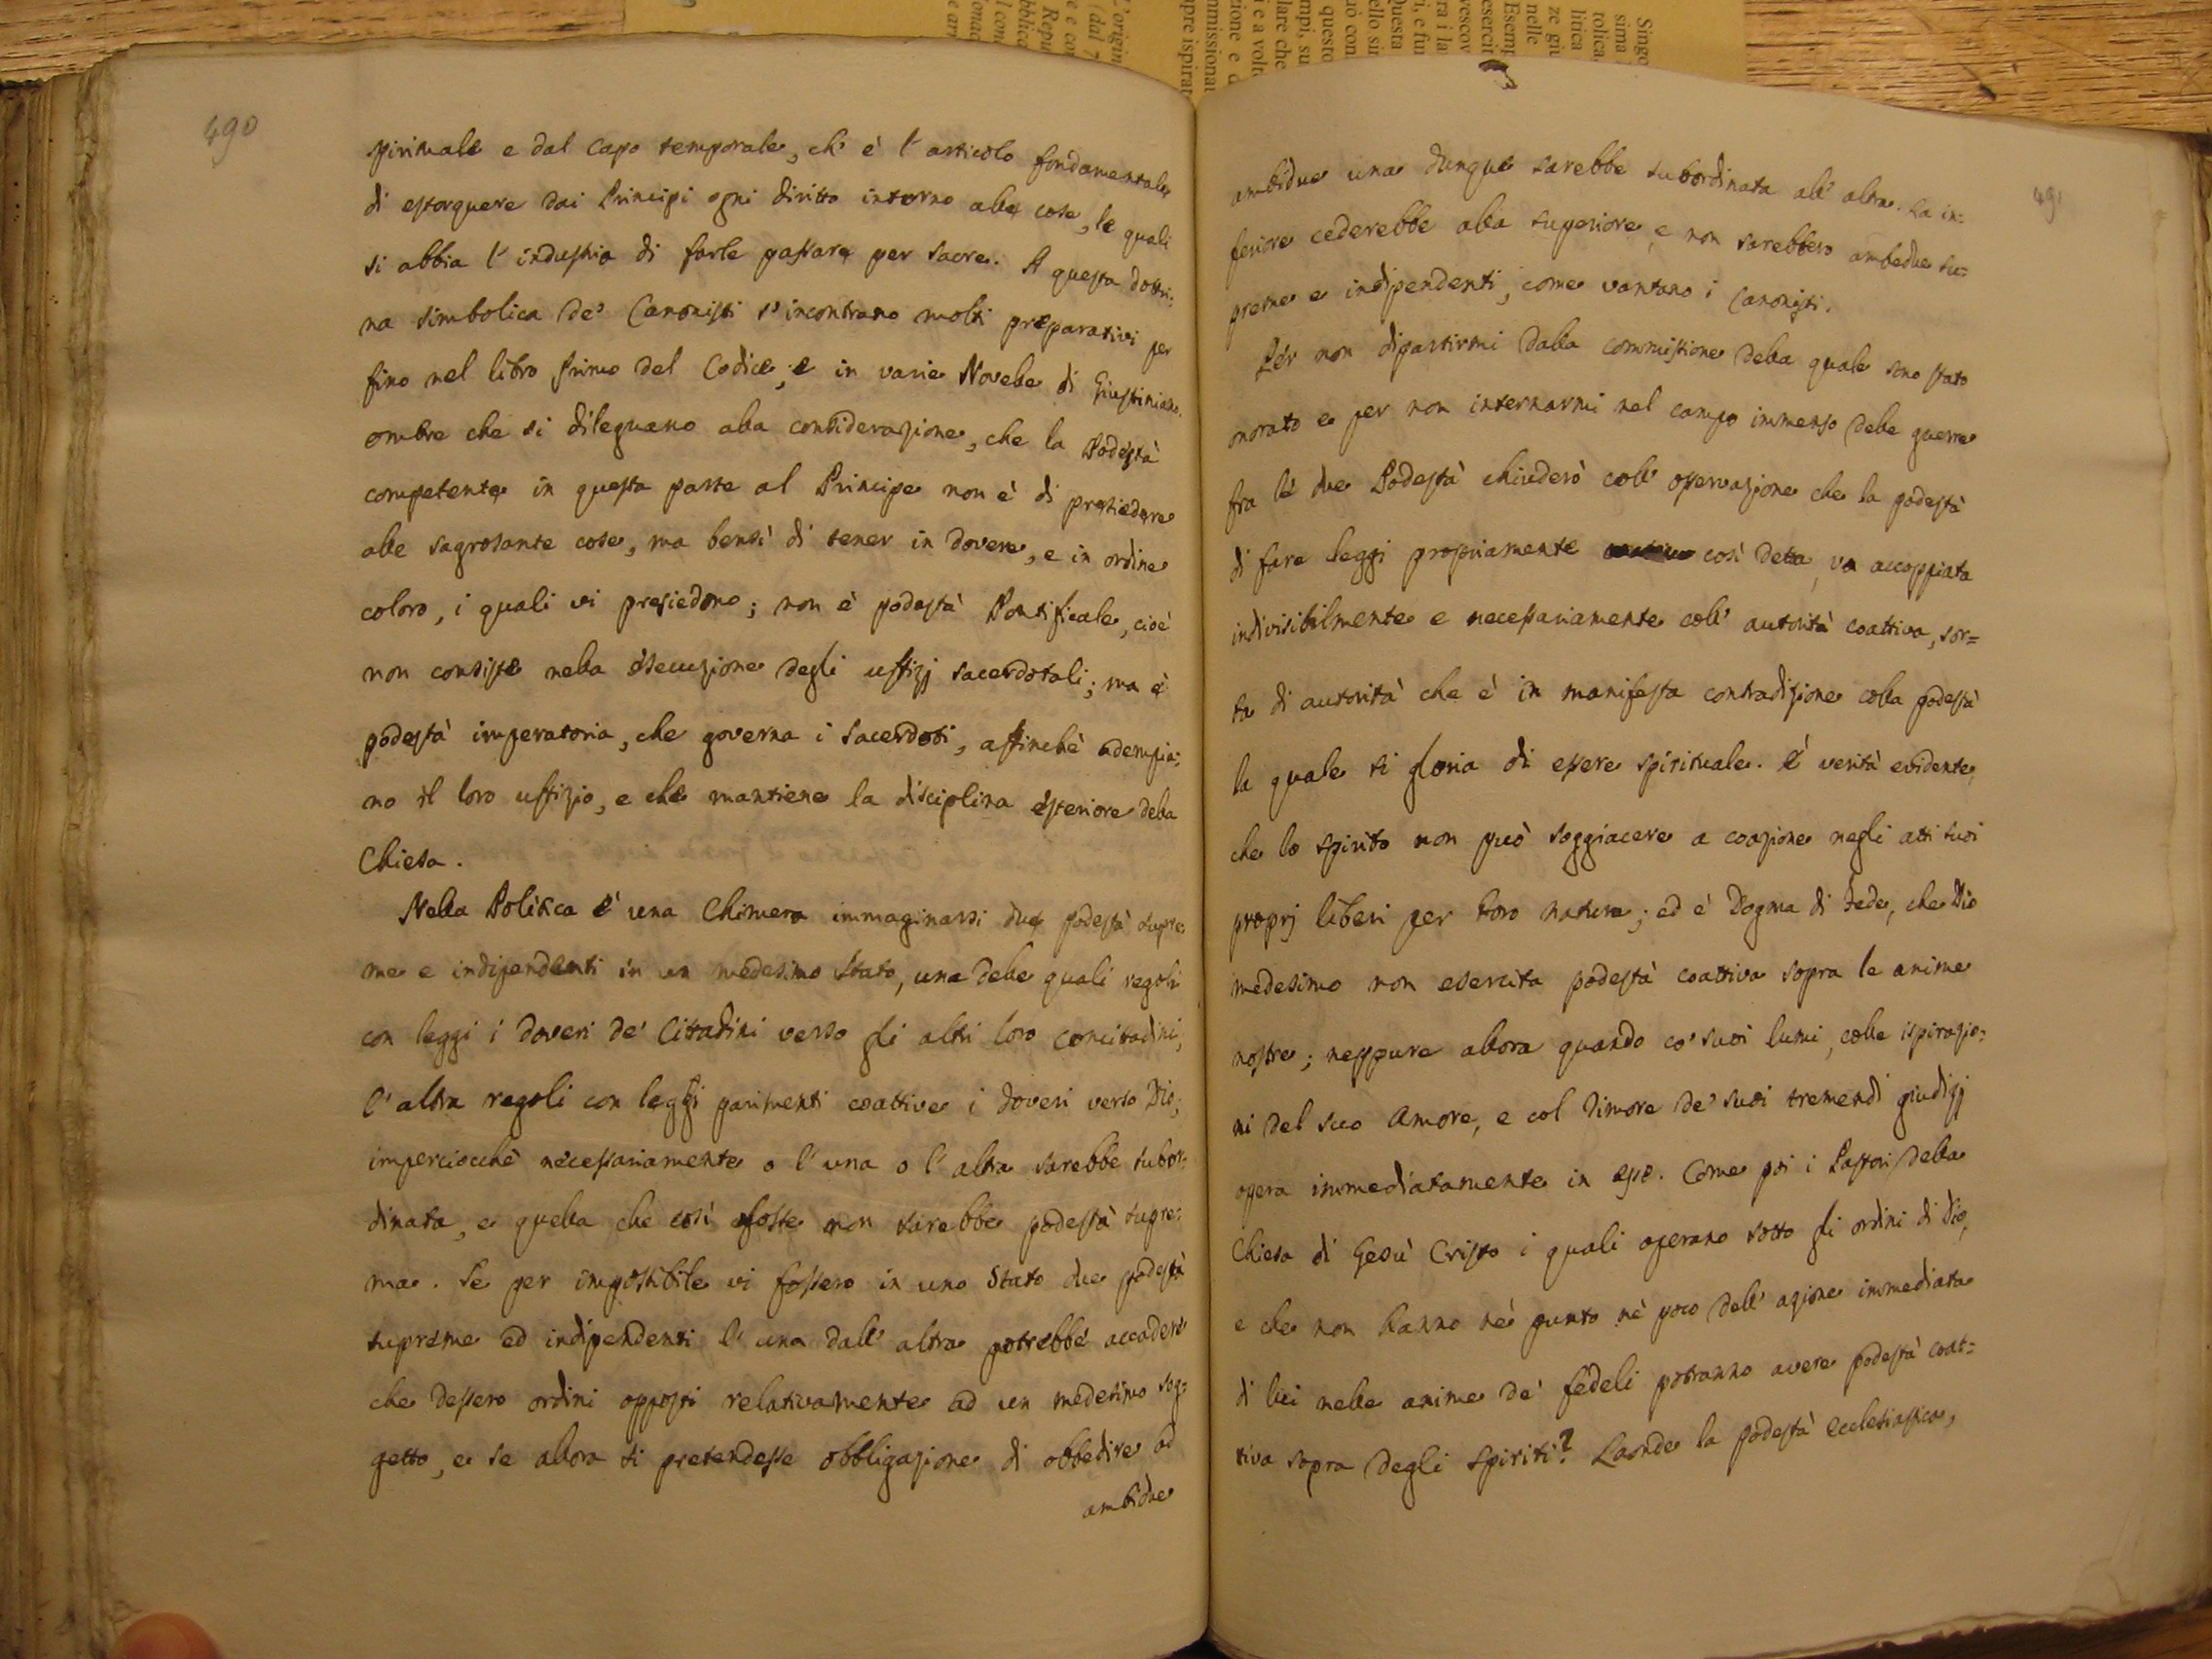 490
spirituale e dal Capo temporale, ch' è l' articolo fondamentale
di estorquere dai Principi ogni diritto intorno alle cose, le quali
si abbia l' industria di farle passare per sacre. A questa dottri:
na simbolica de' Canonisti s' incontrano molti preparativi per
fino nel libro primo del Codice, e in varie Novelle di Giustiniano.
ombre che si dileguano alla considerazione, che la Podestà
competente in questa parte al Principe non è di presiedere
alle sagrosante cose, ma bensì di tener in dovere, e in ordine
coloro, i quali vi presiedono; non è podestà Pontificale, cioè
non consiste nella esecuzione degli uffizj sacerdotali; ma è
podestà imperatoria, che governa i Sacerdoti, affinchè adempia:
no il loro uffizio, e che mantiene la disciplina esteriore della
Chiesa.
Nella Politica è una Chimera immaginarsi due podestà supre:
me e indipendenti in un medesimo Stato, una delle quali regoli
con leggi i doveri de' Cittadini verso gli altri loro concittadini,
l' altra regoli con leggi parimenti coattive i doveri verso Dio;
imperciocchè necessariamente o l' una o l' altra sarebbe subor:
dinata, e quella che così fosse non sarebbe podestà supre:
ma. Se per impossibile vi fossero in uno Stato due podestà
supreme ed indipendenti l' una dall' altra potrebbe accadere
che dessero ordini opposti relativamente ad un medesimo sog:
getto, e se allora si pretendesse obbligazione di obbedire ad
ambidue
491
ambidue una dunque sarebbe subordinata all' altra. La in:
feriore cederebbe alla superiore, e non sarebbero ambedue su:
preme e indipendenti, come vantano i Canonisti.
Per non dipartirmi dalla commissione della quale sono stato
onorato e per non internarmi nel campo immenso delle guerre
fra le due Podestà chiuderò coll' osservazione che la podestà
di fare leggi propriamente così detta, va accoppiata
indivisibilmente e necessariamente coll' autorità coattiva, sor=
ta di autorità che è in manifesta contradizione colla podestà
la quale si gloria di essere spirituale. È verità evidente,
che lo spirito non può soggiacere a coazione negli atti suoi
proprj liberi per loro natura; ed è Dogma di Fede, che Dio
medesimo non esercita podestà coattiva sopra le anime
nostre; neppure allora quando co' suoi lumi, colle ispirazio:
ni del suo Amore, e col timore de' suoi tremendi giudizj
opera immediatamente in esse. Come poi i Pastori della
Chiesa di Gesù Cristo i quali operano sotto gli ordini di Dio,
e che non hanno nè punto nè poco dell' azione immediata
di lui nelle anime de' fedeli potranno avere podestà coat:
tiva sopra degli spiriti? Laonde la podestà ecclesiastica,